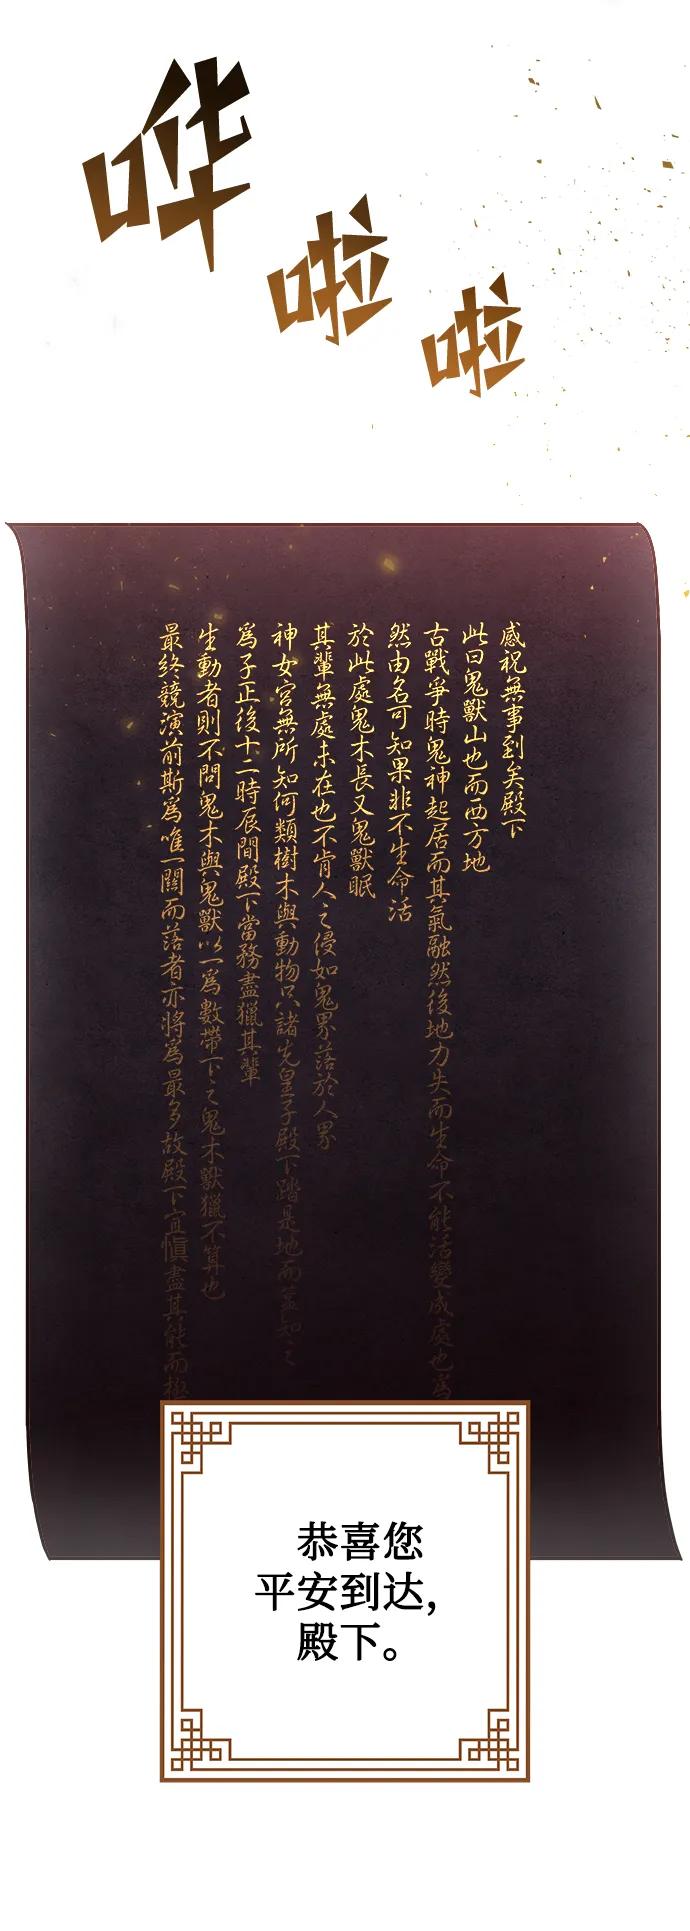 哗啦啦
感祝無事到矣殿下
此曰鬼獸山也而西方地
古戰爭時鬼神起居而其氣融然後地力失而生命不能活變成處也為
然由名可知果非不生命活
於此處鬼木長又鬼獸眠
其輩無處未在也不肯人之侵如鬼界落於人界
神女宮無所知何類樹木與動物只諸先皇子殿下踏是地而蓋知之
爲子正後十二時辰間殿下當務盡獵其輩
生動者則不問鬼木與鬼獸以一爲數帶下之鬼木獸獵不算也
最終競演前斯爲唯一關而落者亦將爲最多故殿下宜愼盡其能而極
恭喜您
平安到达,
殿下。